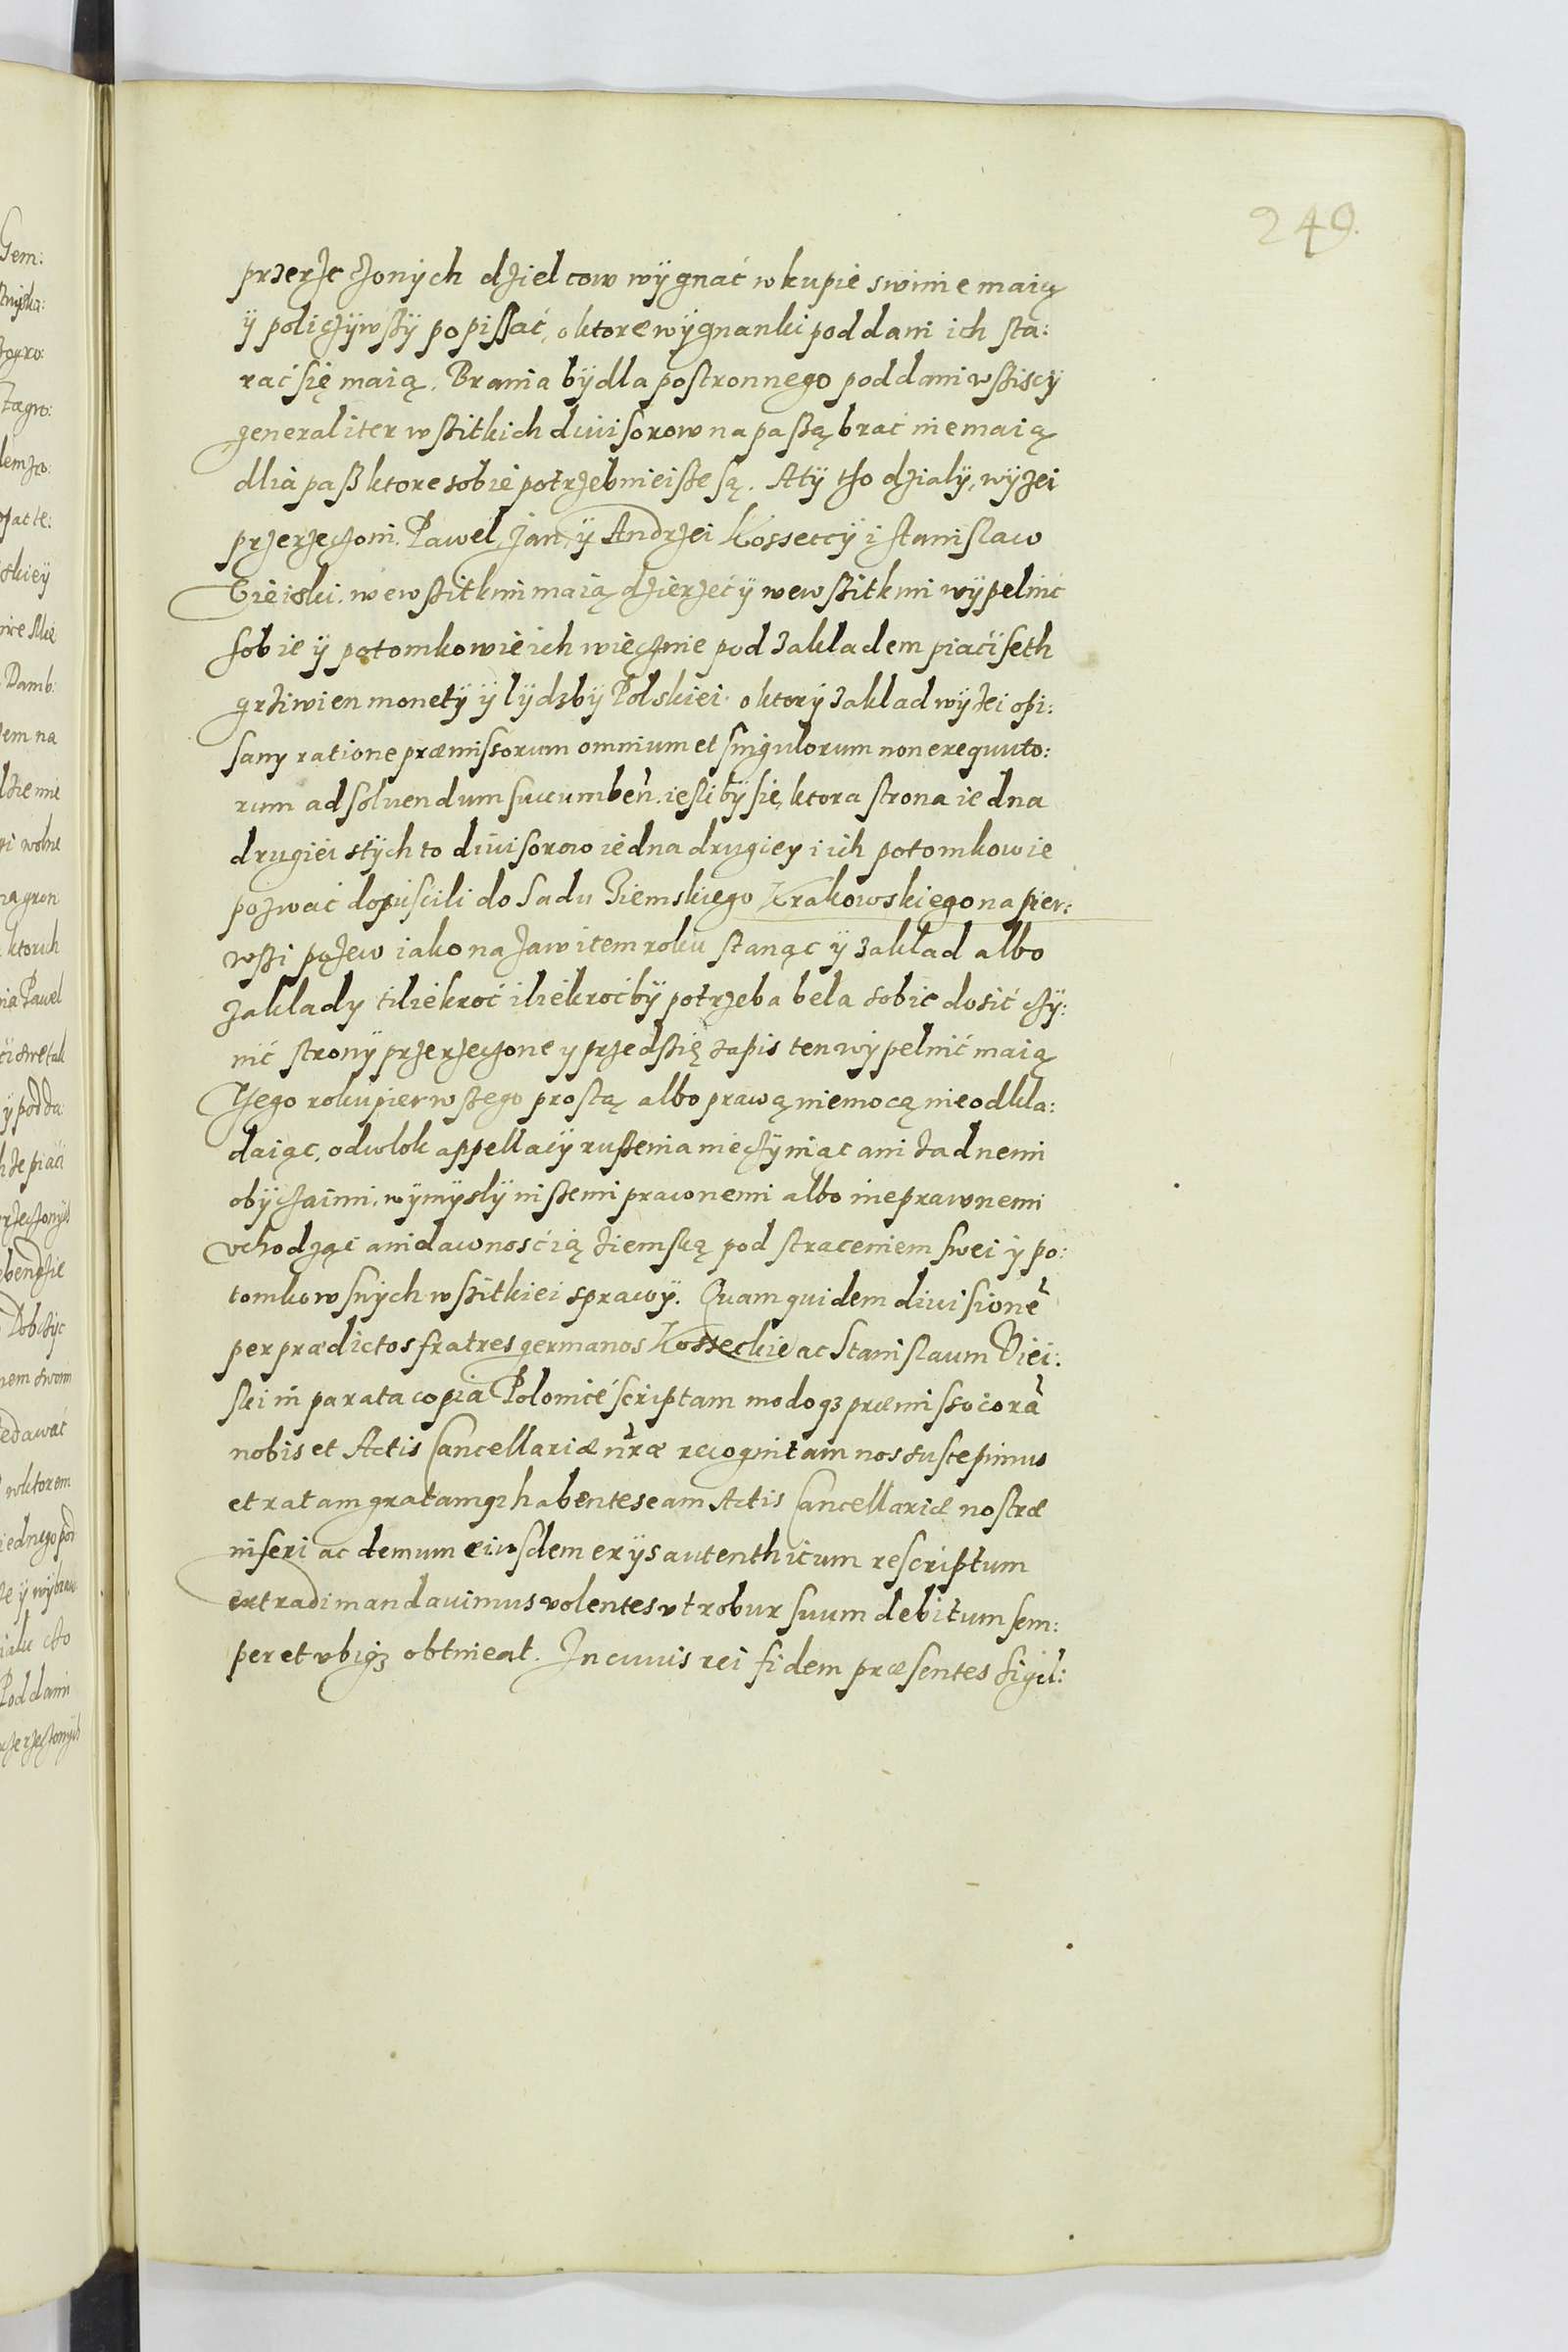 249.
przerzeczonych dzielcow wÿgnać w kupie swinie maią
ÿ policzÿwßÿ popissać, o ktore wÿgnanki poddani ich sta:
rać się maią. Brania bÿdla postronnego poddani wßiscÿ
generaliter wßitkich diuisorow na paßą brać nie maią
dlia paß ktore sobie potrzebnieiße są. A tÿ tho dzialÿ, wÿzei
przerzeczoni. Pawel, Jan, ÿ Andrzei Kosseccÿ i Stanislaw
we wßitkim maią dzierzeć ÿ we wßitkim wÿpelnic
sobie ÿ potomkowie ich wiecznie pod zakladem piaći seth
grziwien monetÿ ÿ lÿdzbÿ Polskiei. o ktorÿ zaklad wÿzei opi:
sany ratione præmissorum omnium et singulorum non exequuto:
rum ad soluendum succumbeñ. iesli bÿ sie, ktora strona iedna
drugiei z tÿch to diuisorow iedna drugiey i ich potomkowie
pozwać dopuscili do Sadu Ziemskiego Krakowskiego na pier:
wßi pozew iako na zawitem roku stanąc ÿ zaklad albo
zaklady tiliekroć iliekroć bÿ potrzeba bela sobie dosić czÿ:
nić stronÿ przerzeczone y przedßię zapis ten wÿpelnić maią
Tego roku pierwßego prostą albo prawą niemocą nie odkla:
daiąc, odwlok appellacÿ rußenia nie czÿniac ani zadnemi
obÿczaimi, wÿmÿslÿ inßemi prawnemi albo nieprawnemi
vchodząc ani dawnosćią ziemską pod straceniem swei ÿ po:
tomkow snÿch wßitkiei sprawÿ. Quam quidem diuisionẽ
per prædictos fratres germanos Kosseckie ac Stanislaum Viei:
ski in parata copia Polonicé scriptam modoqȝ præmisso corã
nobis et Actis Cancellariæ nr̃æ recognitam nos suscepimus
et ratam gratamqȝ habentes eam Actis Cancellariæ nostræ
inseri ac demum eiusdem ex ijs autenthicum rescriptum
extradi mandauimus volentes vt robur suum debitum sem:
per et vbiqȝ obtineat. In cuius rei fidem præsentes sigil: